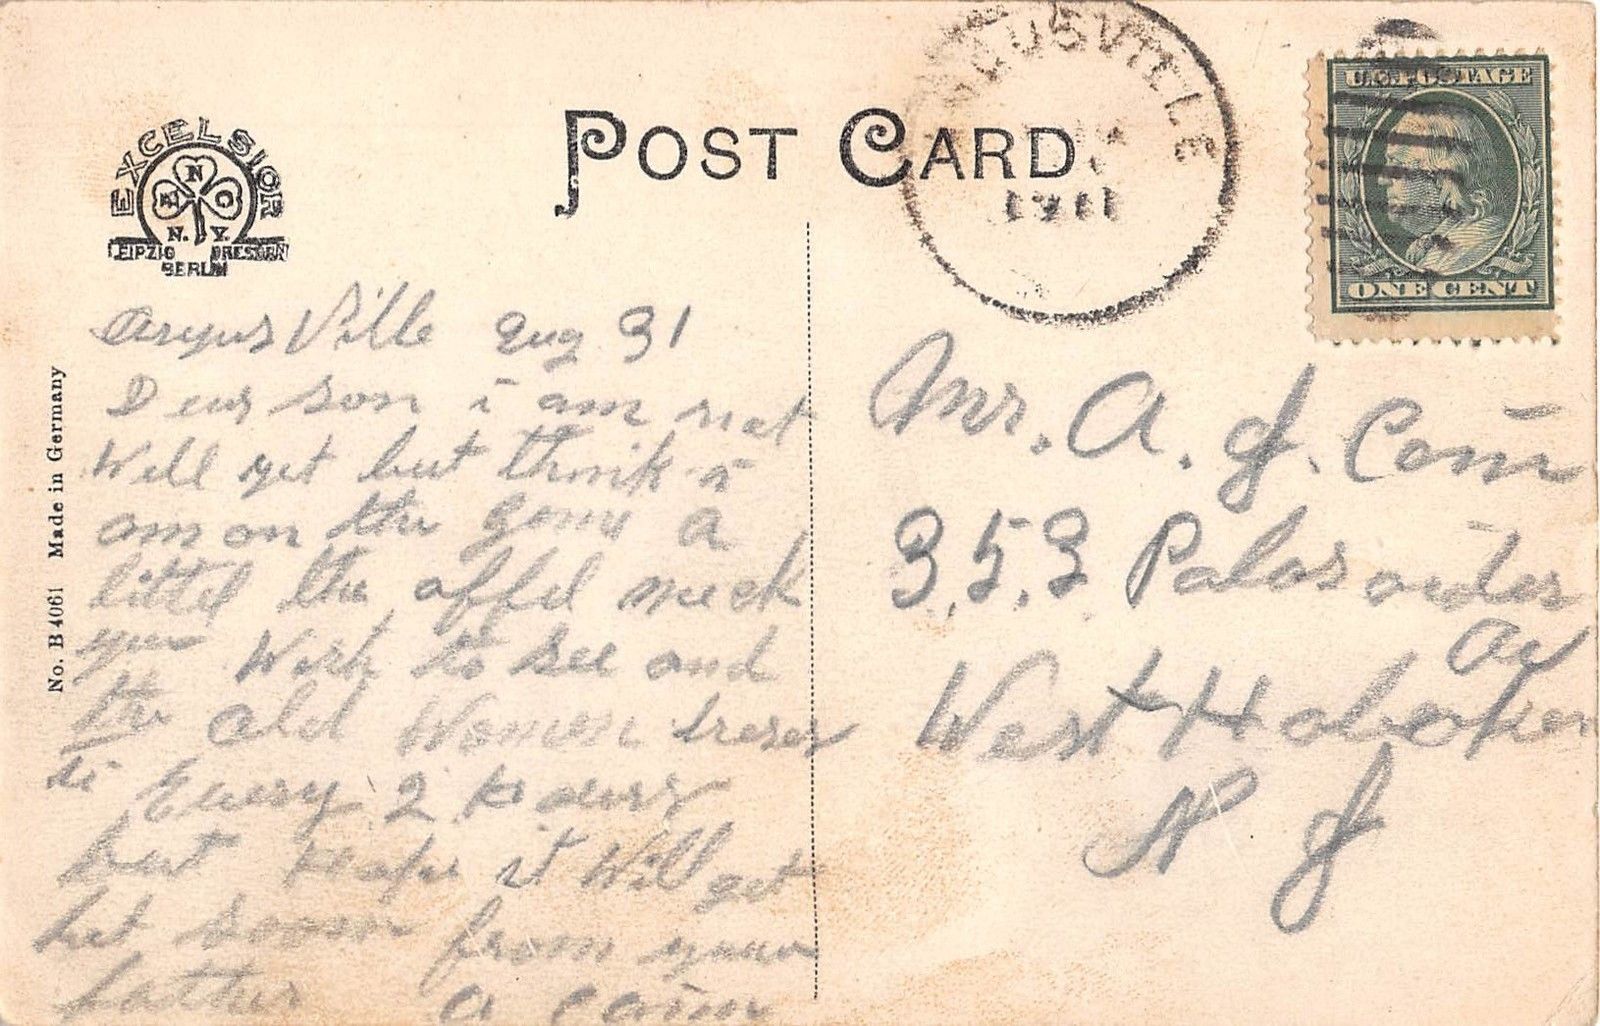 EXCELSIOR
N
C
N. Y.
LEIPZIG DRESDEN
BERLIN
POST CARD
1911
U.S. POSTAGE
ONE CENT
No. B 4061 Made in Germany
Argus Ville Aug 31
Dear son i am not
Well yet but think i
am on the gone a
littel the affel meck
you Wish to see and
the old Women
Every 2 Hours
but Hope it Will get
bet soon from your
father a Cain
Mr. A. J. Cain
353 Palasades
av
West Hoboken
N J